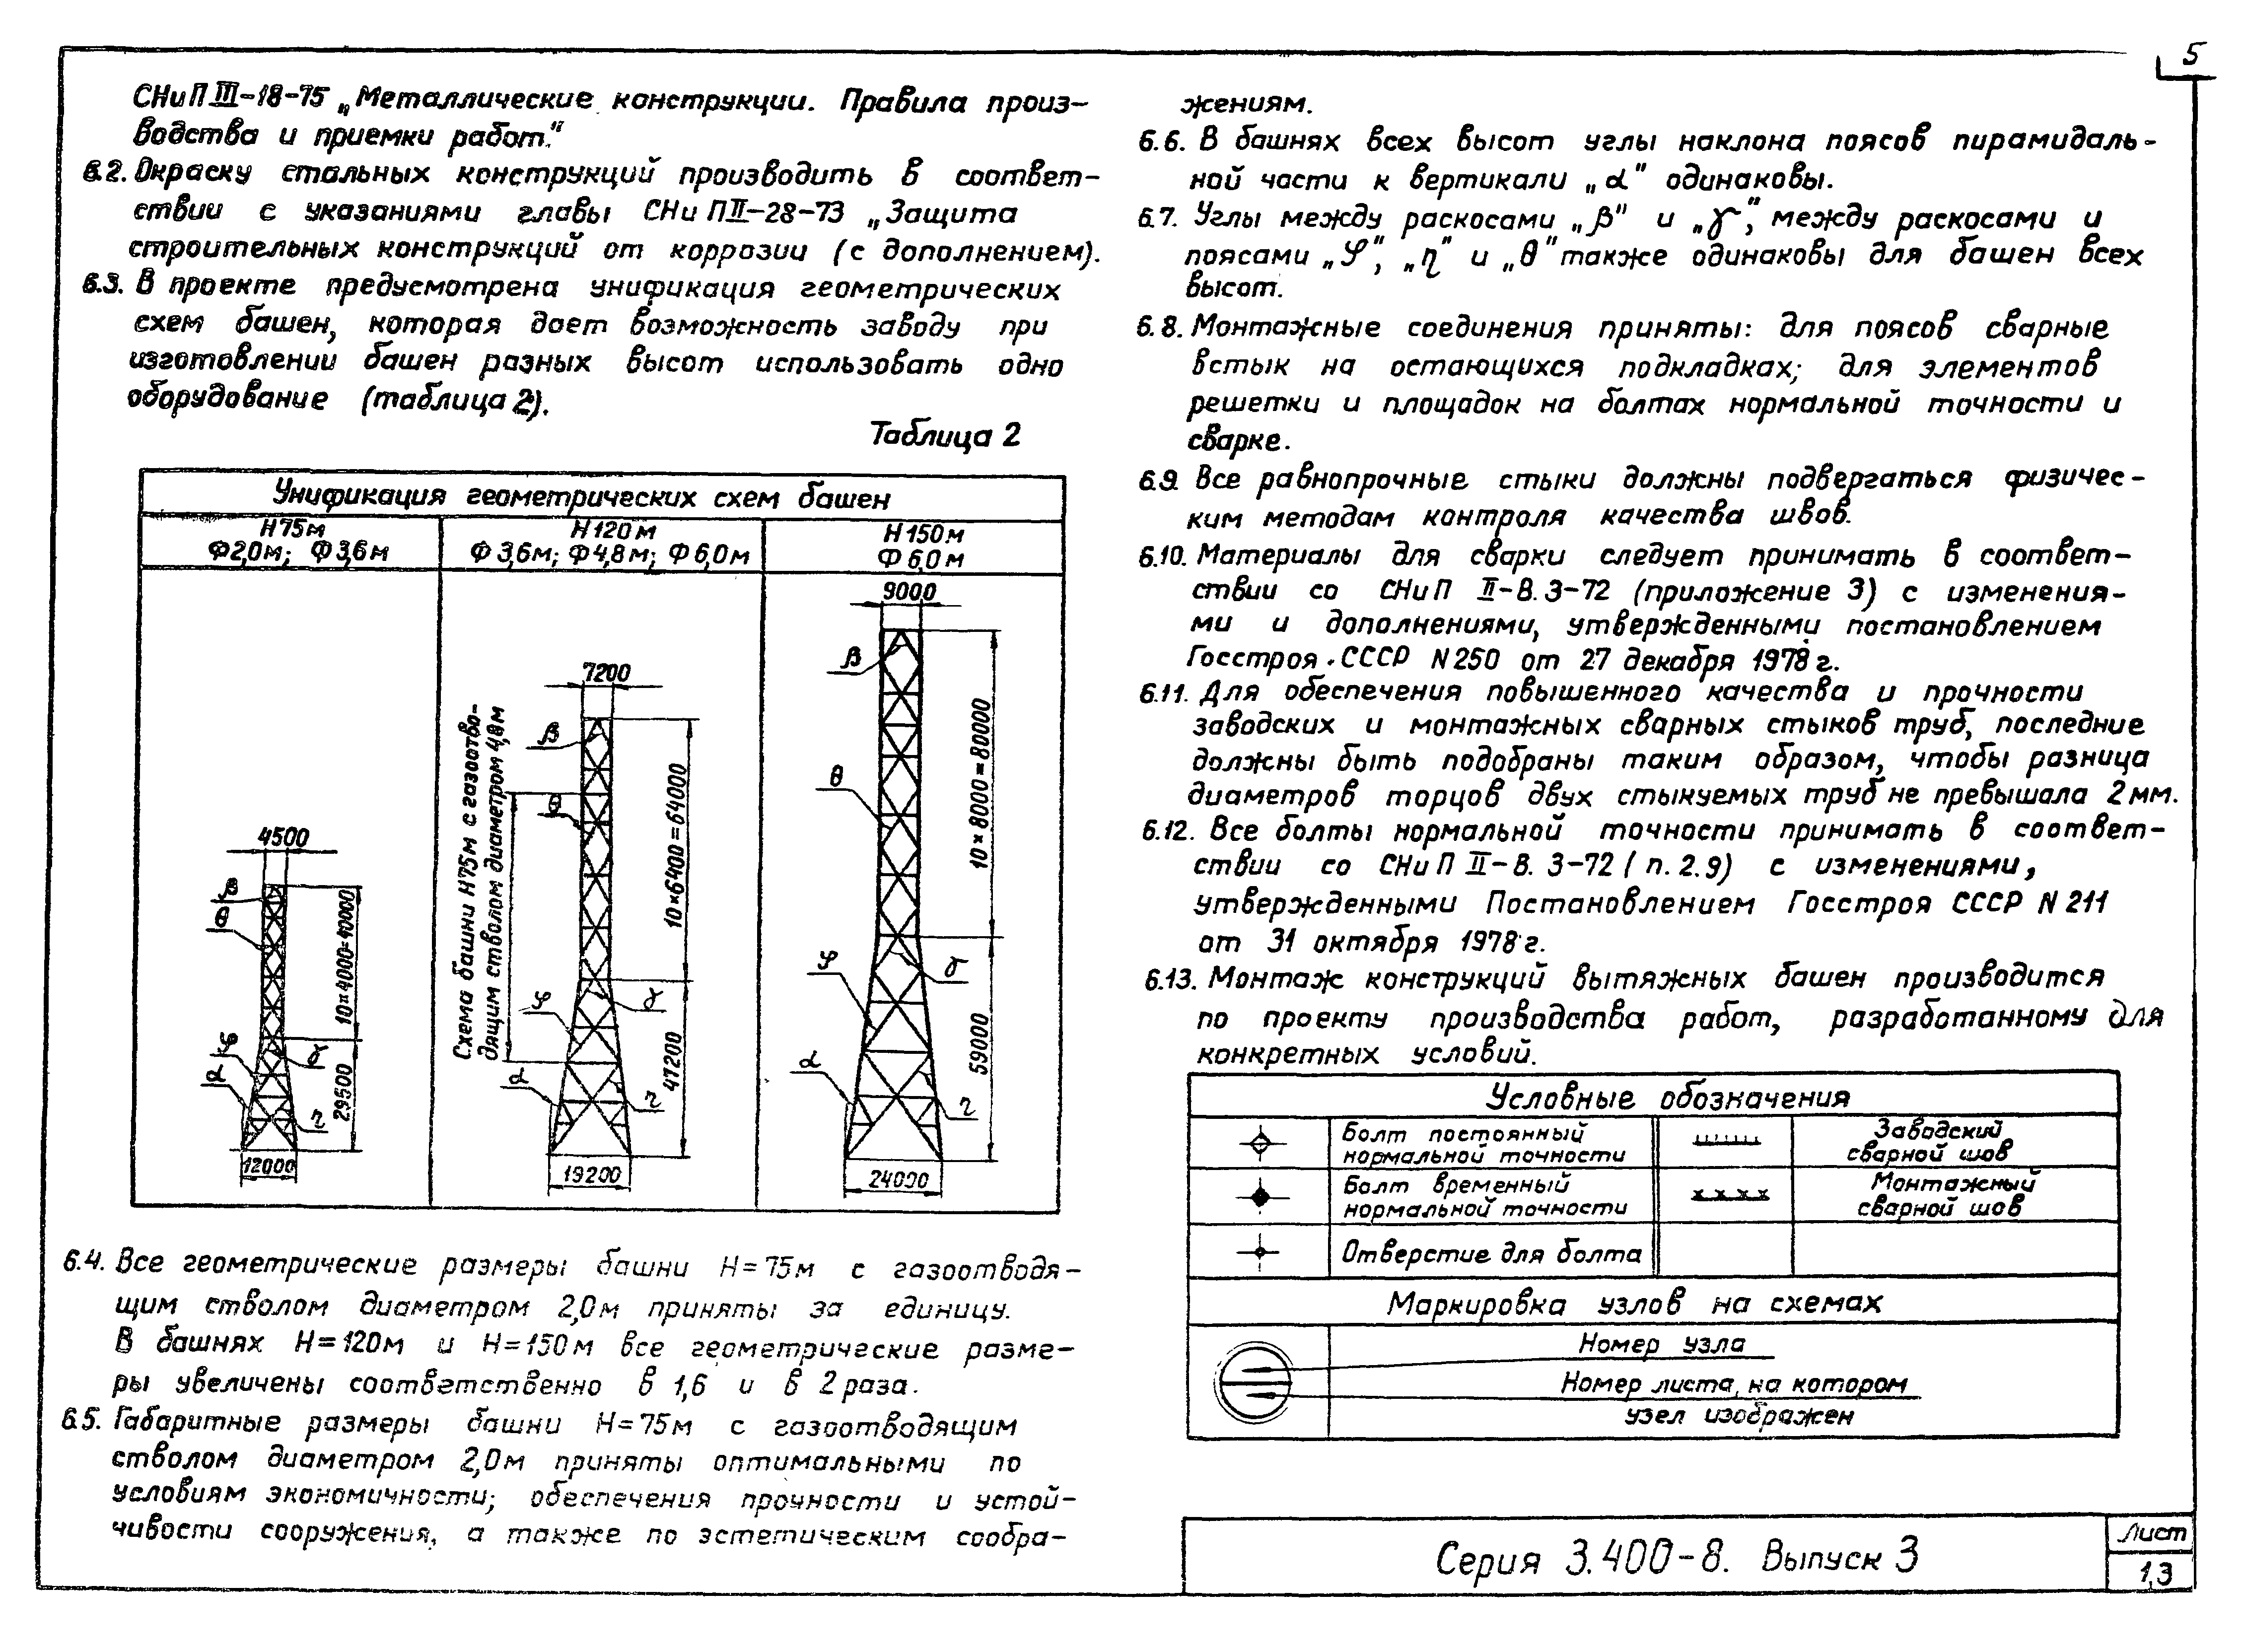 5
СНиП III-18-75 „Металлические конструкции. Правила произ-
водства и приемки работ."
6.2. Окраску стальных конструкций производить в соответ-
ствии с указаниями главы СНиП II-28-73 „Защита
строительных конструкций от коррозии (с дополнением).
6.3. В проекте предусмотрена унификация геометрических
схем башен, которая дает возможность заводу при
изготовлении башен разных высот использовать одно
оборудование (таблица 2).
Таблица 2
Унификация геометрических схем башен
H75м
Ф2,0м; Ф3,6м
H120м
Ф3,6м; Ф4,8м; Ф6,0м
H150м
Ф6,0м
4500
β
θ
10×4000=40000
φ
γ
α
29500
η
12000
Схема башни H75м с газоотво-
дящим стволом диаметром 4,8м
7200
β
θ
10×6400=64000
φ
γ
α
47200
η
19200
9000
β
θ
10×8000=80000
φ
γ
α
59000
η
24000
6.4. Все геометрические размеры башни H=75м с газоотводя-
щим стволом диаметром 2,0м приняты за единицу.
В башнях H=120м и H=150м все геометрические разме-
ры увеличены соответственно в 1,6 и в 2 раза.
6.5. Габаритные размеры башни H=75м с газоотводящим
стволом диаметром 2,0м приняты оптимальными по
условиям экономичности; обеспечения прочности и устой-
чивости сооружения, а также по эстетическим сообра-
жениям.
6.6. В башнях всех высот углы наклона поясов пирамидаль-
ной части к вертикали „α" одинаковы.
6.7. Углы между раскосами „β" и „γ", между раскосами и
поясами „φ", „η" и „θ" также одинаковы для башен всех
высот.
6.8. Монтажные соединения приняты: для поясов сварные
встык на остающихся подкладках; для элементов
решетки и площадок на болтах нормальной точности и
сварке.
6.9. Все равнопрочные стыки должны подвергаться физичес-
ким методам контроля качества швов.
6.10. Материалы для сварки следует принимать в соответ-
ствии со СНиП II-В.3-72 (приложение 3) с изменения-
ми и дополнениями, утвержденными постановлением
Госстроя СССР N250 от 27 декабря 1978 г.
6.11. Для обеспечения повышенного качества и прочности
заводских и монтажных сварных стыков труб, последние
должны быть подобраны таким образом, чтобы разница
диаметров торцов двух стыкуемых труб не превышала 2мм.
6.12. Все болты нормальной точности принимать в соответ-
ствии со СНиП II-В.3-72 (п.2.9) с изменениями,
утвержденными Постановлением Госстроя СССР N 211
от 31 октября 1978 г.
6.13. Монтаж конструкций вытяжных башен производится
по проекту производства работ, разработанному для
конкретных условий.
Условные обозначения
Болт постоянный
нормальной точности
Заводский
сварной шов
Болт временный
нормальной точности
Монтажный
сварной шов
Отверстие для болта
Маркировка узлов на схемах
Номер узла
Номер листа, на котором
узел изображен
Серия 3.400-8. Выпуск 3
Лист
1,3